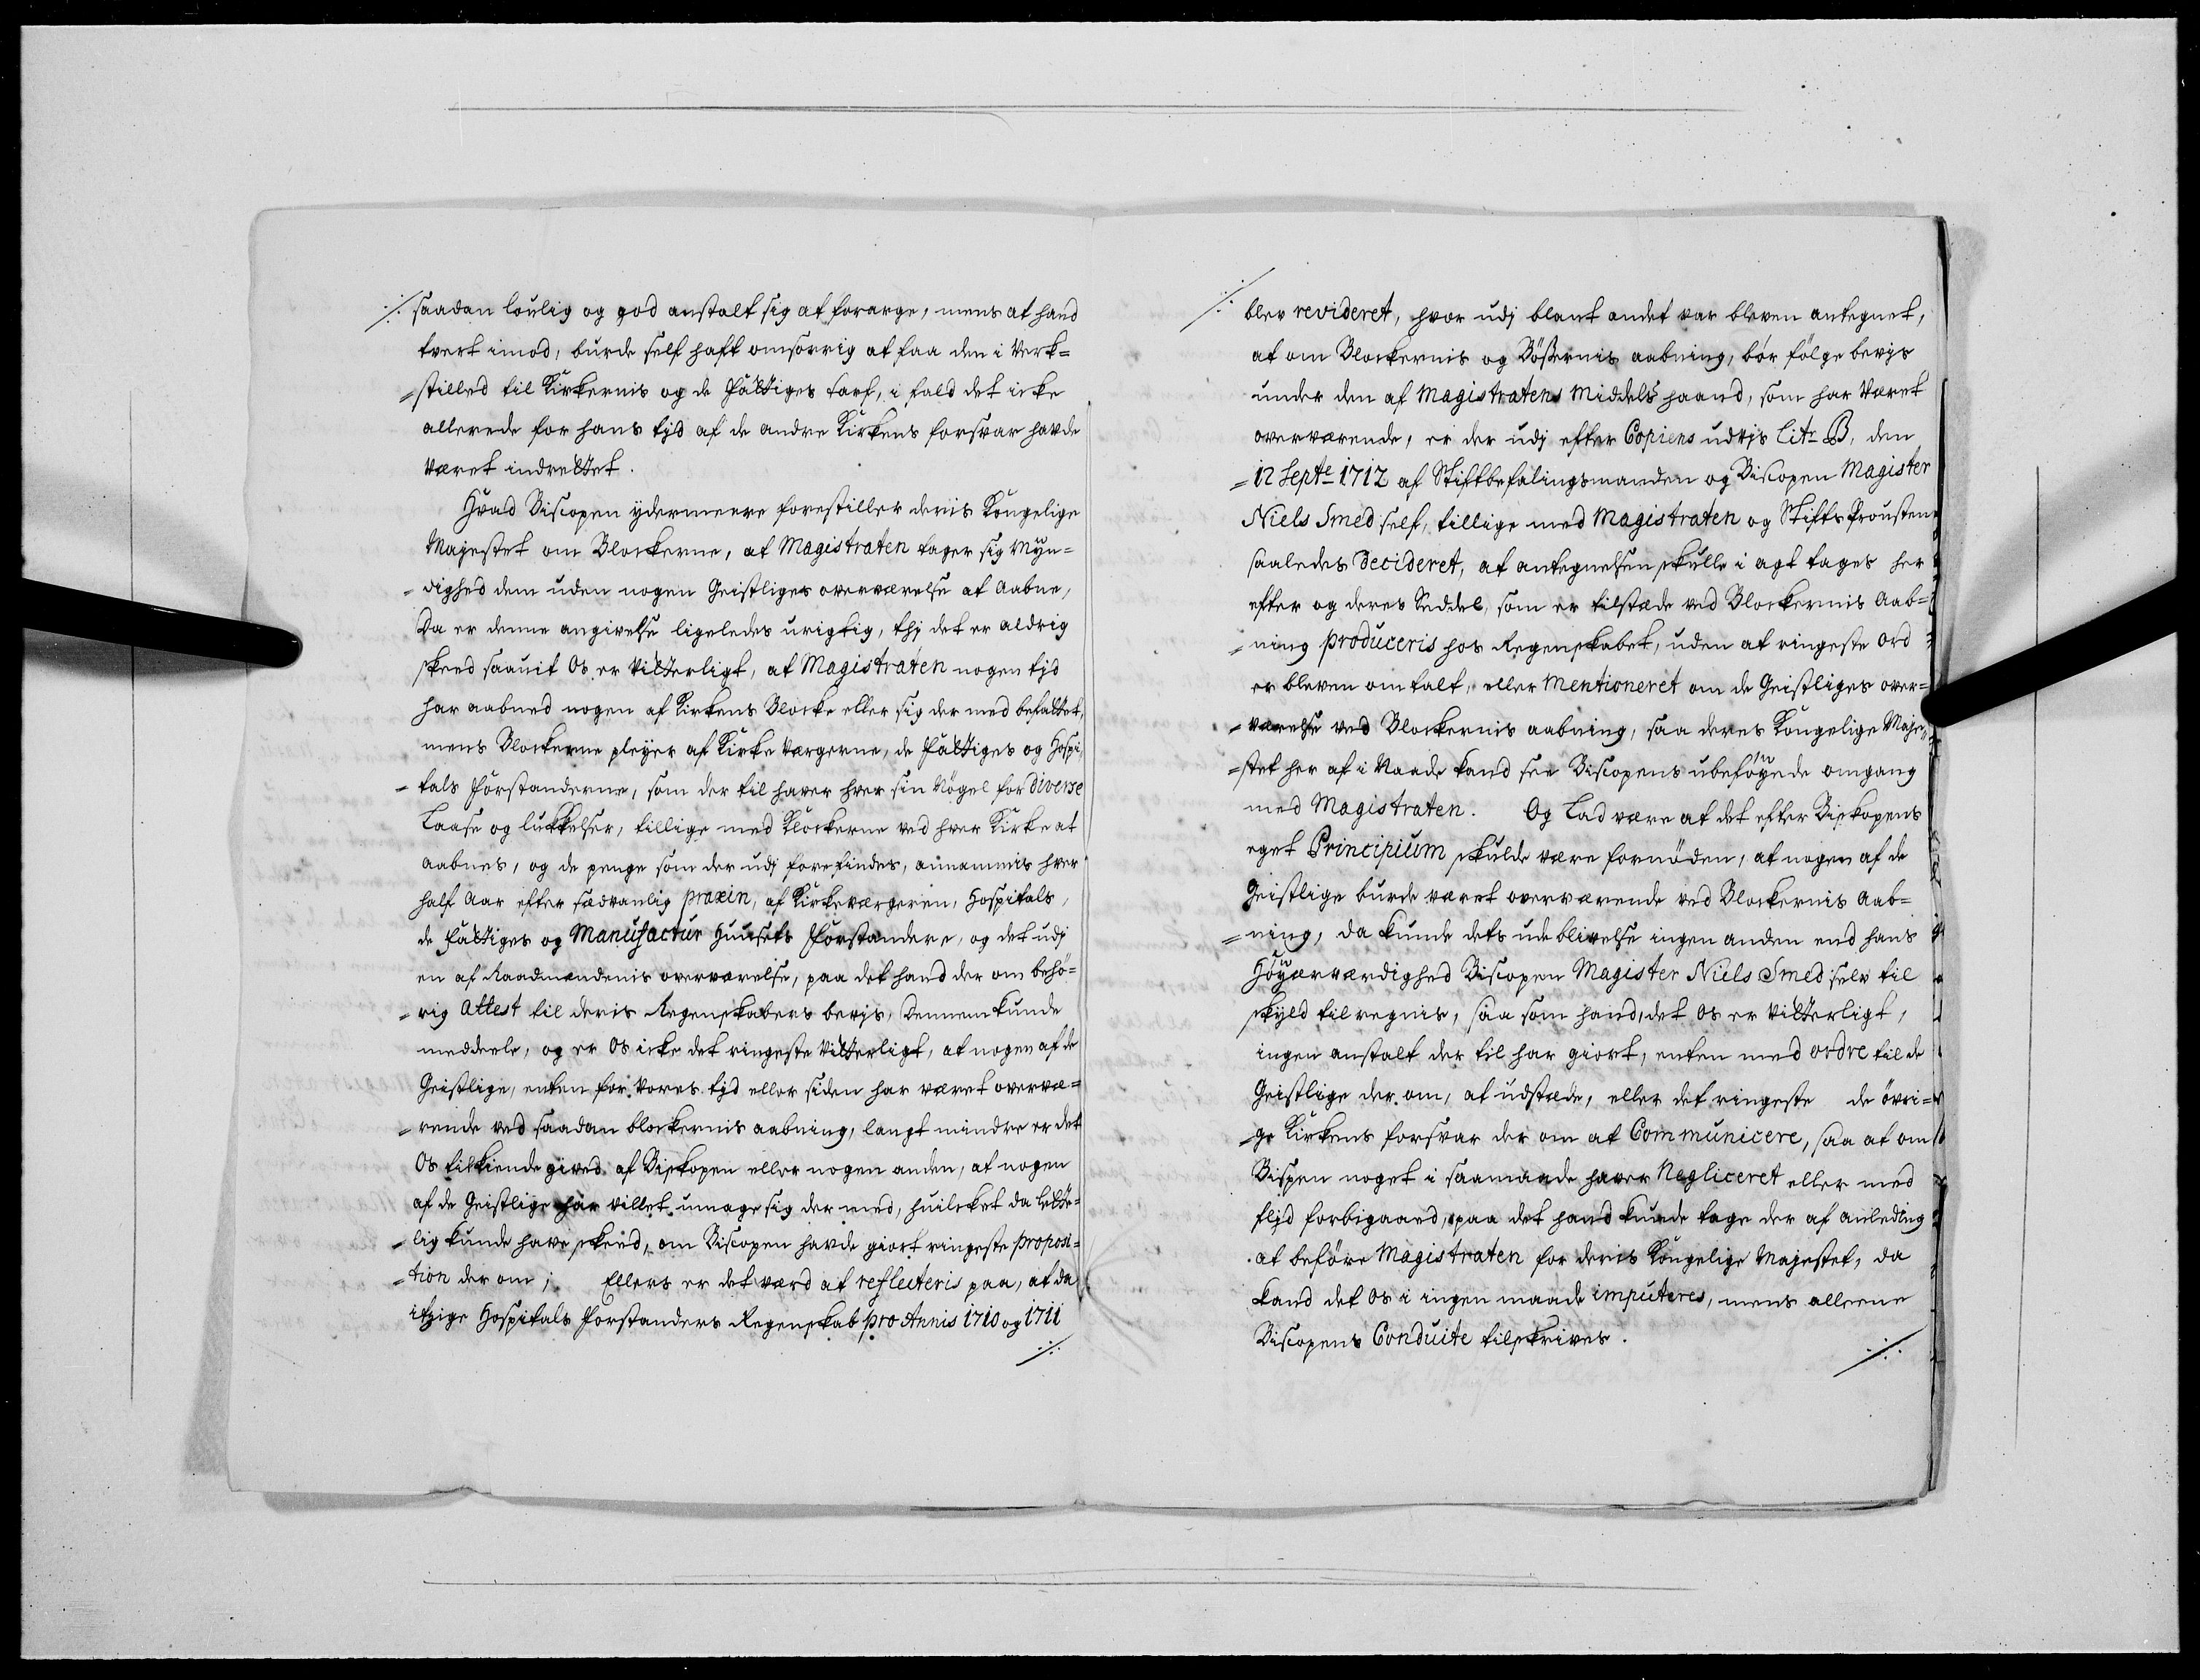 ./. saadan lovlig og god anstalt sig at forarge, mens at hand
tvert imod, burde self hafft omsorrig at faa den i Verk=
=stilled til Kirkernis og de Fattiges tarf, i fald det icke
allerede for hans tjd af de andre Kirkens forsvar havde
været indrettet.
Hvad Biscopen ydermeere forestiller deris Kongelige
Majestet om Blockerne, at Magistraten tager sig Myn=
=dighed dem uden nogen Geistliges overværelse at Aabne,
Da er denne angivelse ligeledes urigtig, thj det er aldrig
skeed saavit Os er Vitterligt, at Magistraten nogen tjd
har aabned nogen af Kirkens Blocke eller sig der med befattet,
mens Blockerne pleyer af Kirke Vargerne, de Fattiges og Hospi,
=tals Forstanderne, som der til haver hver sin Nögel for diverse
Laase og lukkelser, tillige med Klockerne ved hver Kirke at
aabnes, og de penge som der udj forefindes, annammis hver
half Aar efter sædvanlig praxin, af Kirkeværgeren, Hospitals,
de Fattiges og Manufactur Huusets Forstandere, og det udj
en af Raadmændenis overværelse, paa det hand der om behö=
=rig Attest til deris Regenskabers bevjs, Dennem kunde
meddeele, og er Os icke det ringeste Vitterligt, at nogen af de
Geistlige, enten for Vores tjd eller siden har været overvæ=
=rende ved saadan blockernis aabning, langt mindre er det
Os tilkiende gived af Biskopen eller nogen anden, at nogen
af de Geistlige har villet umage sig der med, huilcket da lætte=
=lig kunde have skeed, om Biscopen havde giort ringeste proposi=
=tion der om; Ellers er det værd at reflecteris paa, at da
itzige Hospitals Forstanders Regenskab pro Annis 1710 og 1711
./.
./. blev revideret, hvor udj blant andet var bleven antegnet,
at om Blockernis og Bößernis aabning, bör fölge bevjs
under den af Magistratens Middels haand, som har Været
overværende, er der udj efter Copiens udvjs Litr B, den
=12 Septe 1712 af Stiftbefalingsmanden og Biscopen Magister
Niels Smed self, tillige med Magistraten og Stifts Prousten
saaledes Decideret, at antegnelsen skulle i agt tages her
efter og deres Seddel, som er tilstæde ved Blockernis Aab=
=ning produceris hos Regenskabet, uden at ringeste Ord
er bleven omtalt, eller Mentioneret om de Geistliges over=
=værelse ved Blockernis aabning, saa deres Kongelige Maje,,
=stet her af i Naade kand see Biscopens ubeföyede omgang
med Magistraten. Og Lad være at det efter Biskopens
eget Principium skulde være fornöden, at nogen af de
Geistlige burde været overværende ved Blockernis Aab=
=ning, da kunde dets udeblivelse ingen anden end hans
Höyærværdighed Biscopen Magister Niels Smed selv til
skyld tilregnis, saa som hand, det Os er Vitterligt,
ingen anstalt der til har giort, enten med Ordre til de
Geistlige der om, at udstæde, eller det ringeste de övri=
=ge Kirkens forsvar der om at Communicere, saa at om
Bispen noget i saamaade haver Negliceret eller med
flijd forbigaaed, paa det hand kunde tage der af anledng
at beföre Magistraten for deris Kongelige Majestet, da
kand det Os i ingen maade imputeres, mens alleene
Biscopens Conduite tilskrives.
./.